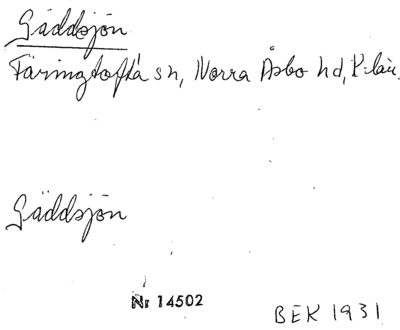 Gäddsjön
Färingtofta sn, Norra Åsbo hd, K-län.
Gäddsjön
Nr 14502
BEK 1931